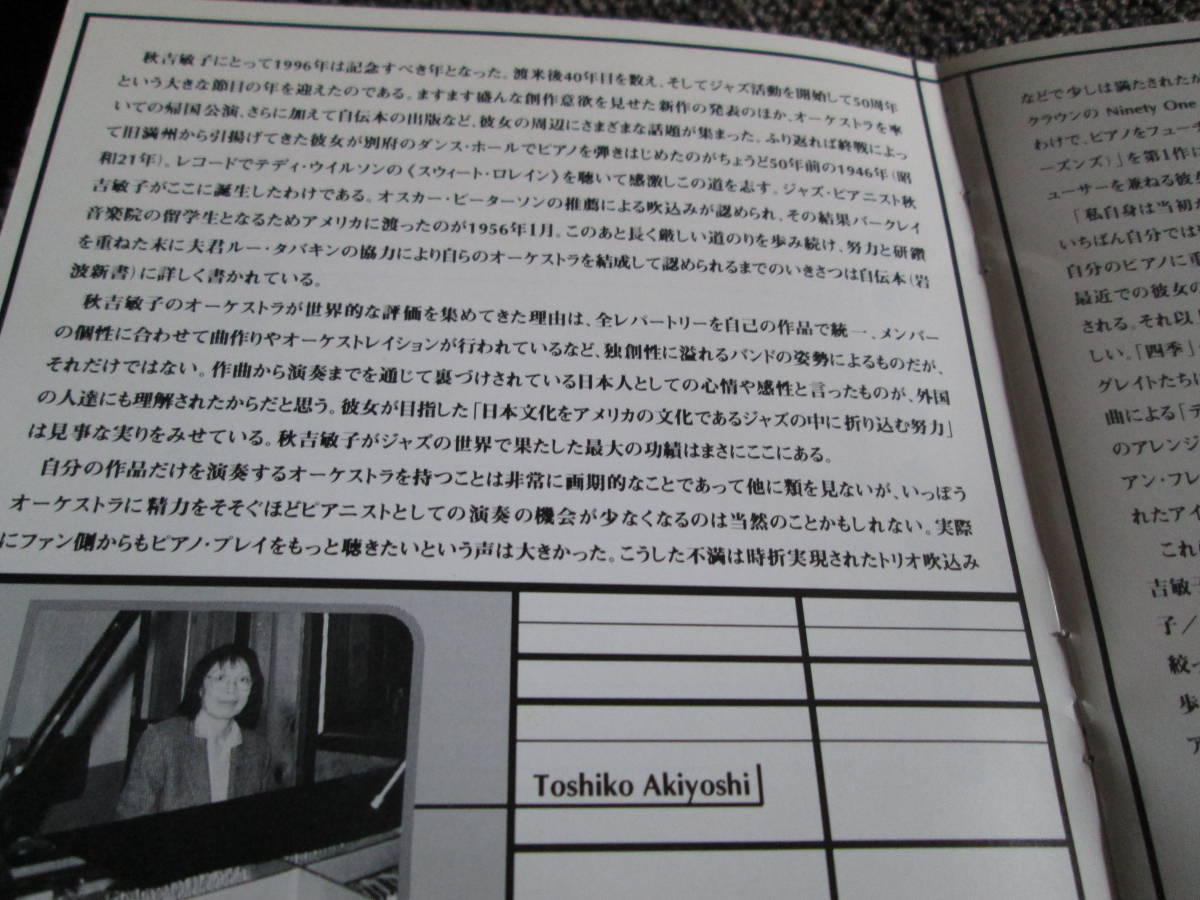 秋吉敏子にとって1996年は記念すべき年となった。渡米後40年目を数え、そしてジャズ活動を開始して50周年
という大きな節目の年を迎えたのである。ますます盛んな創作意欲を見せた新作の発表のほか、オーケストラを率
いての帰国公演、さらに加えて自伝本の出版など、彼女の周辺にさまざまな話題が集まった。ふり返れば終戦によっ
て旧満州から引揚げてきた彼女が別府のダンス・ホールでピアノを弾きはじめたのがちょうど50年前の1946年(昭
和21年)。レコードでテディ・ウイルソンの《スウィート・ロレイン》を聴いて感激しこの道を志す。ジャズ・ピアニスト秋
吉敏子がここに誕生したわけである。オスカー・ピーターソンの推薦による吹込みが認められ、その結果バークレイ
音楽院の留学生となるためアメリカに渡ったのが1956年1月。このあと長く厳しい道のりを歩み続け、努力と研鑽
を重ねた末に夫君ルー・タバキンの協力により自らのオーケストラを結成して認められるまでのいきさつは自伝本(岩
波新書)に詳しく書かれている。
秋吉敏子のオーケストラが世界的な評価を集めてきた理由は、全レパートリーを自己の作品で統一、メンバー
の個性に合わせて曲作りやオーケストレイションが行われているなど、独創性に溢れるバンドの姿勢によるものだが、
それだけではない。作曲から演奏までを通じて裏づけされている日本人としての心情や感性と言ったものが、外国
の人達にも理解されたからだと思う。彼女が目指した「日本文化をアメリカの文化であるジャズの中に折り込む努力」
は見事な実りをみせている。秋吉敏子がジャズの世界で果たした最大の功績はまさにここにある。
自分の作品だけを演奏するオーケストラを持つことは非常に画期的なことであって他に類を見ないが、いっぽう
オーケストラに精力をそそぐほどピアニストとしての演奏の機会が少なくなるのは当然のことかもしれない。実際
にファン側からもピアノ・プレイをもっと聴きたいという声は大きかった。こうした不満は時折実現されたトリオ吹込み
Toshiko Akiyoshi
などで少しは満たされたか
クラウンの Ninety One
わけで、ピアノをフューチ
ーズンズ)」を第1作に
ューサーを兼ねる彼
「私自身は当初か
いちばん自分では
自分のピアノに重
最近での彼女の
される。それ以
しい。「四季」
グレイトたちに
曲による「デ
のアレンジ
アン・フレ
れたアイ
これ
吉敏
子/
絞っ
歩
ア